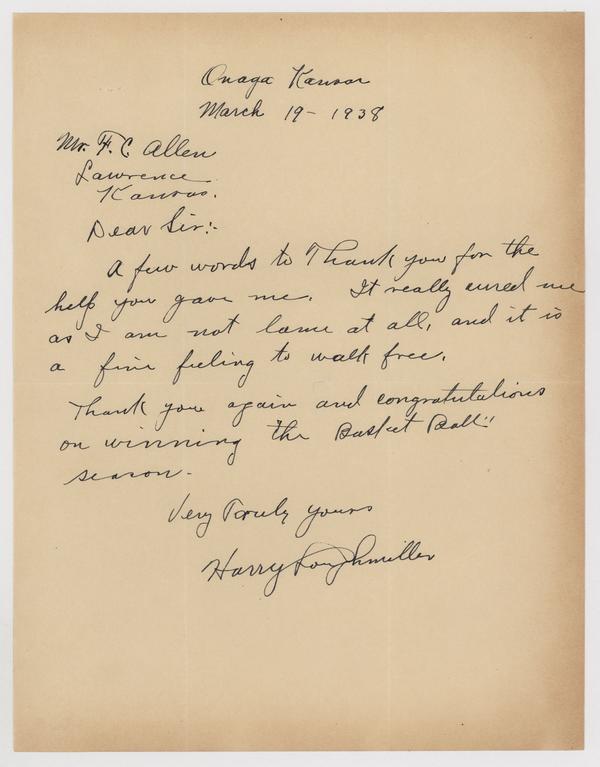 Onaga Kansas
March 19 - 1938
Mr. F. C. Allen
Lawrence
Kansas.
Dear Sir:-
A few words to Thank you for the
help you gave me. It really cured me
as I am not lame at all, and it is
a fine feeling to walk free.
Thank you again and congratulations
on winning the Basket Ball"
season.
Very Truly yours
Harry